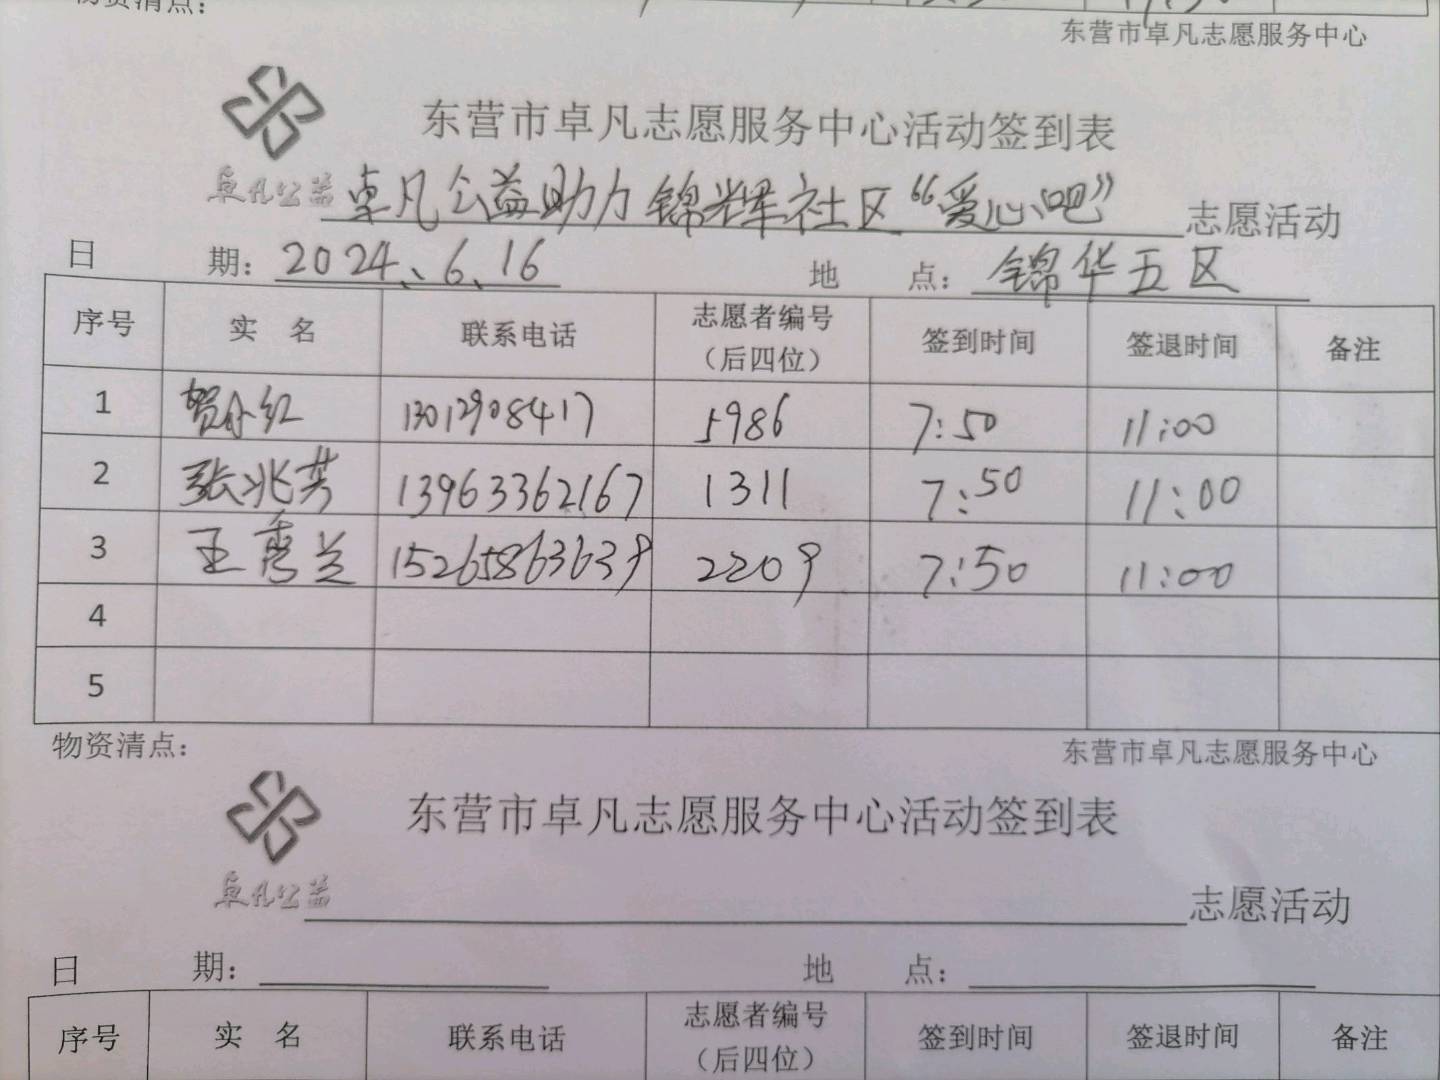 物资清点：
东营市卓凡志愿服务中心
东营市卓凡志愿服务中心活动签到表
卓凡公益 卓凡公益助力锦辉社区“爱心吧” 志愿活动
日 期：2024、6、16 地 点：锦华五区
序号 实 名 联系电话 志愿者编号（后四位） 签到时间 签退时间 备注
1 贺小红 13012908417 5986 7:50 11:00
2 张兆芳 13963362167 1311 7:50 11:00
3 王秀兰 15265863639 2209 7:50 11:00
4
5
物资清点： 东营市卓凡志愿服务中心
东营市卓凡志愿服务中心活动签到表
卓凡公益 志愿活动
日 期： 地 点：
序号 实 名 联系电话 志愿者编号（后四位） 签到时间 签退时间 备注